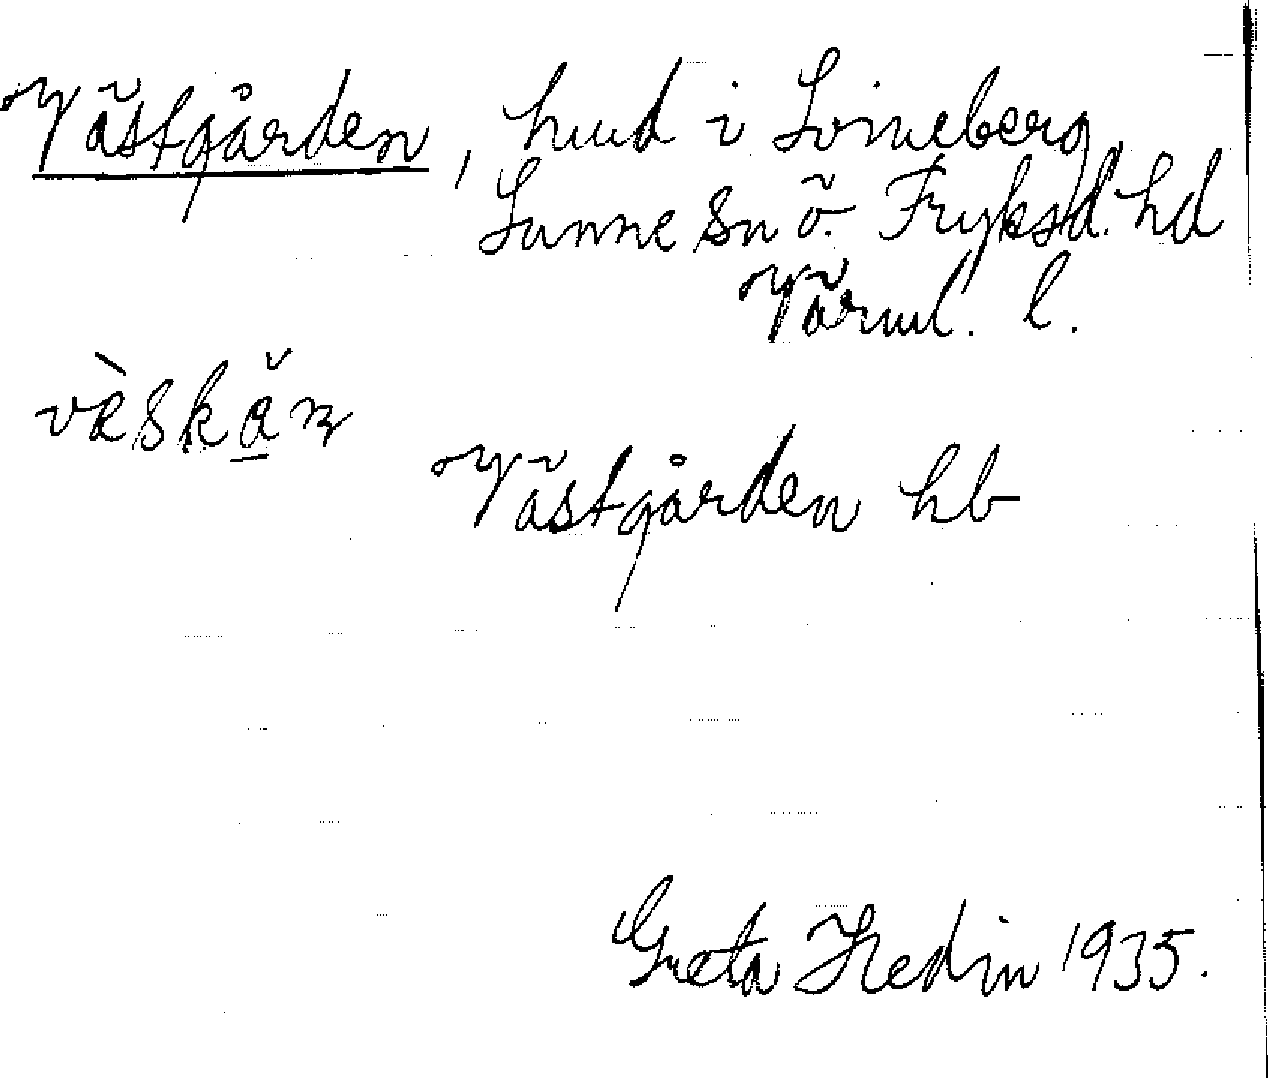 Västgården, hmd i Lönneberg,
Sunne sn ö. Fryksd. hd
Värml. l.
vὲskǎ̱n
Västgården hb
Greta Hedin 1935.